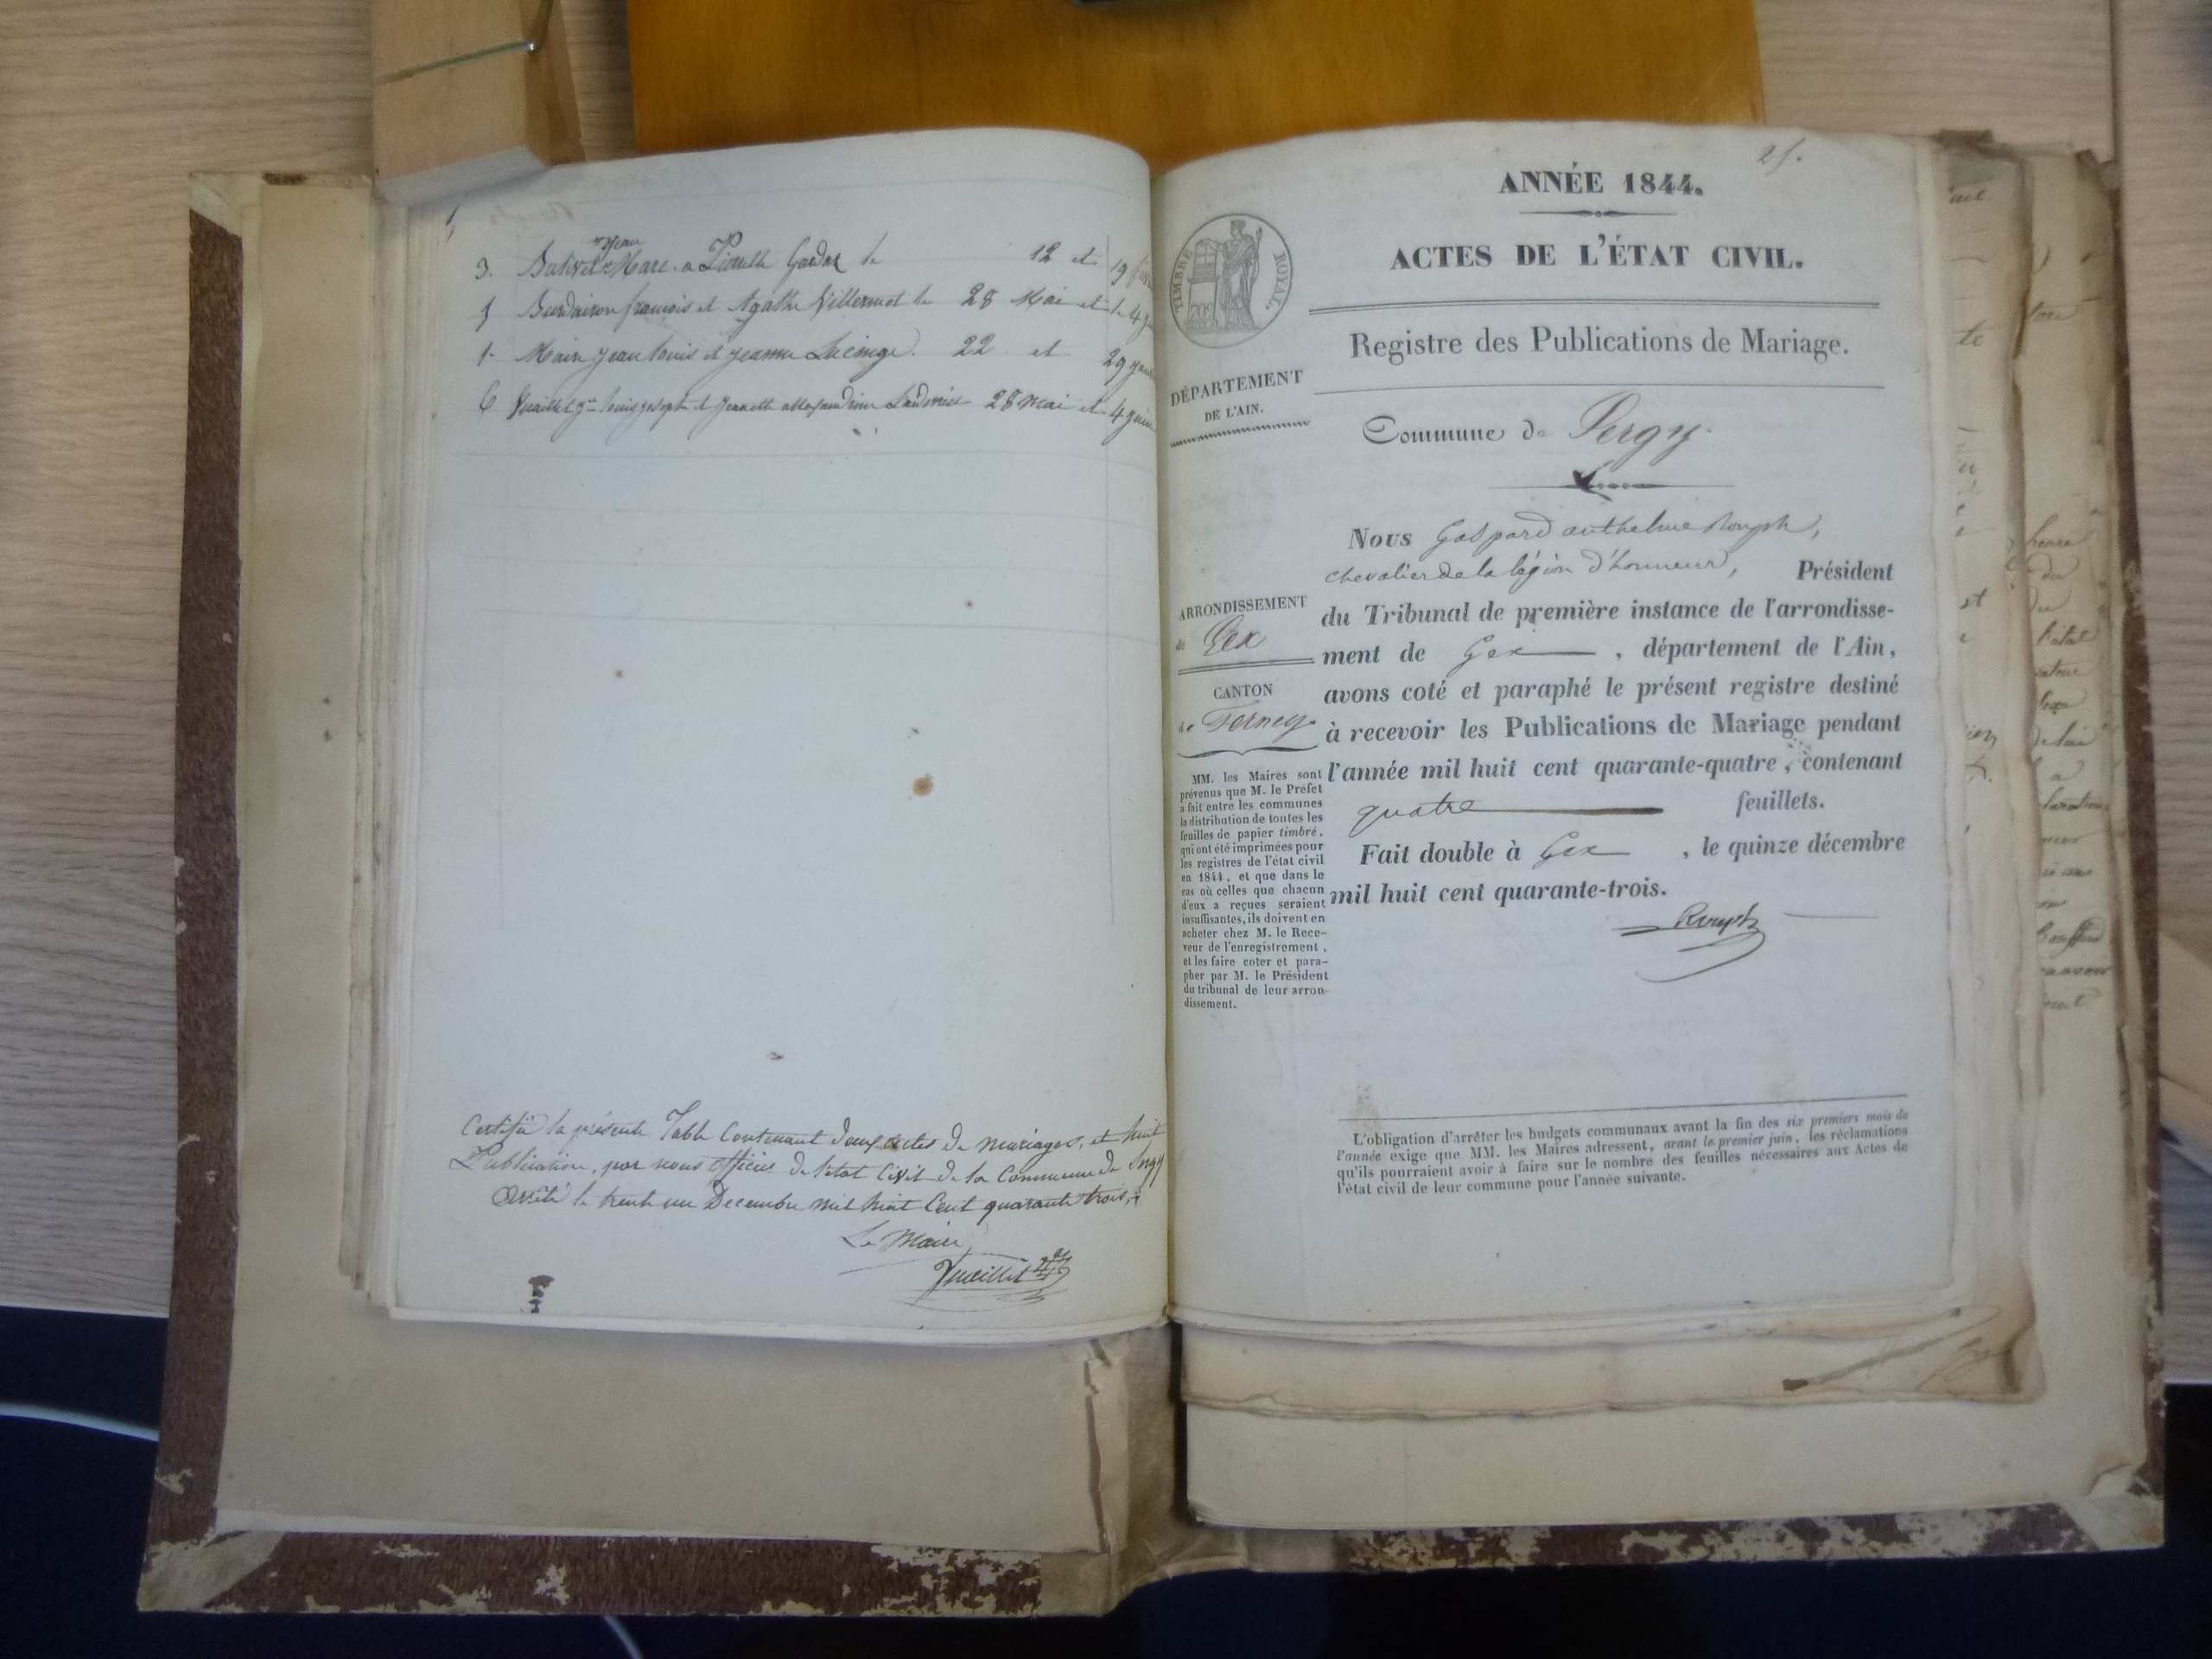 3. Jean Marc a Pernette le 12 et 19
François et Agathe Villermet le 28 Mai et le 4
1 Jean Louis et Jeanne 22 et 29
6 Louis Joseph et Jeannette 28 mai et 4 juin
Certifié la présente Table Contenant actes de mariages, et huit
Publication, par nous officier de l'etat Civil de la Commune de Sergy
Arrêté le trente un Decembre mil huit Cent quarante trois,
Le Maire
25.
ANNÉE 1844.
TIMBRE ROYAL.
ACTES DE L'ÉTAT CIVIL.
Registre des Publications de Mariage.
DÉPARTEMENT
DE L'AIN.
Commune de Sergy.
Nous Gaspard anthelme Rouph,
chevalier de la légion d'honneur, Président
ARRONDISSEMENT
de Gex
du Tribunal de première instance de l'arrondisse-
ment de Gex, département de l'Ain,
CANTON
de Ferney
avons coté et paraphé le présent registre destiné
à recevoir les Publications de Mariage pendant
l'année mil huit cent quarante-quatre, contenant
quatre feuillets.
Fait double à Gex, le quinze décembre
mil huit cent quarante-trois.
Rouph
MM. les Maires sont
prévenus que M. le Préfet
a fait entre les communes
la distribution de toutes les
feuilles de papier timbré,
qui ont été imprimées pour
les registres de l'état civil
en 1844, et que dans le
cas où celles que chacun
d'eux a reçues seraient
insuffisantes, ils doivent en
acheter chez M. le Rece-
veur de l'enregistrement,
et les faire coter et para-
pher par M. le Président
du tribunal de leur arron-
dissement.
L'obligation d'arrêter les budgets communaux avant la fin des six premiers mois de
l'année exige que MM. les Maires adressent, avant le premier juin, les réclamations
qu'ils pourraient avoir à faire sur le nombre des feuilles nécessaires aux Actes de
l'état civil de leur commune pour l'année suivante.